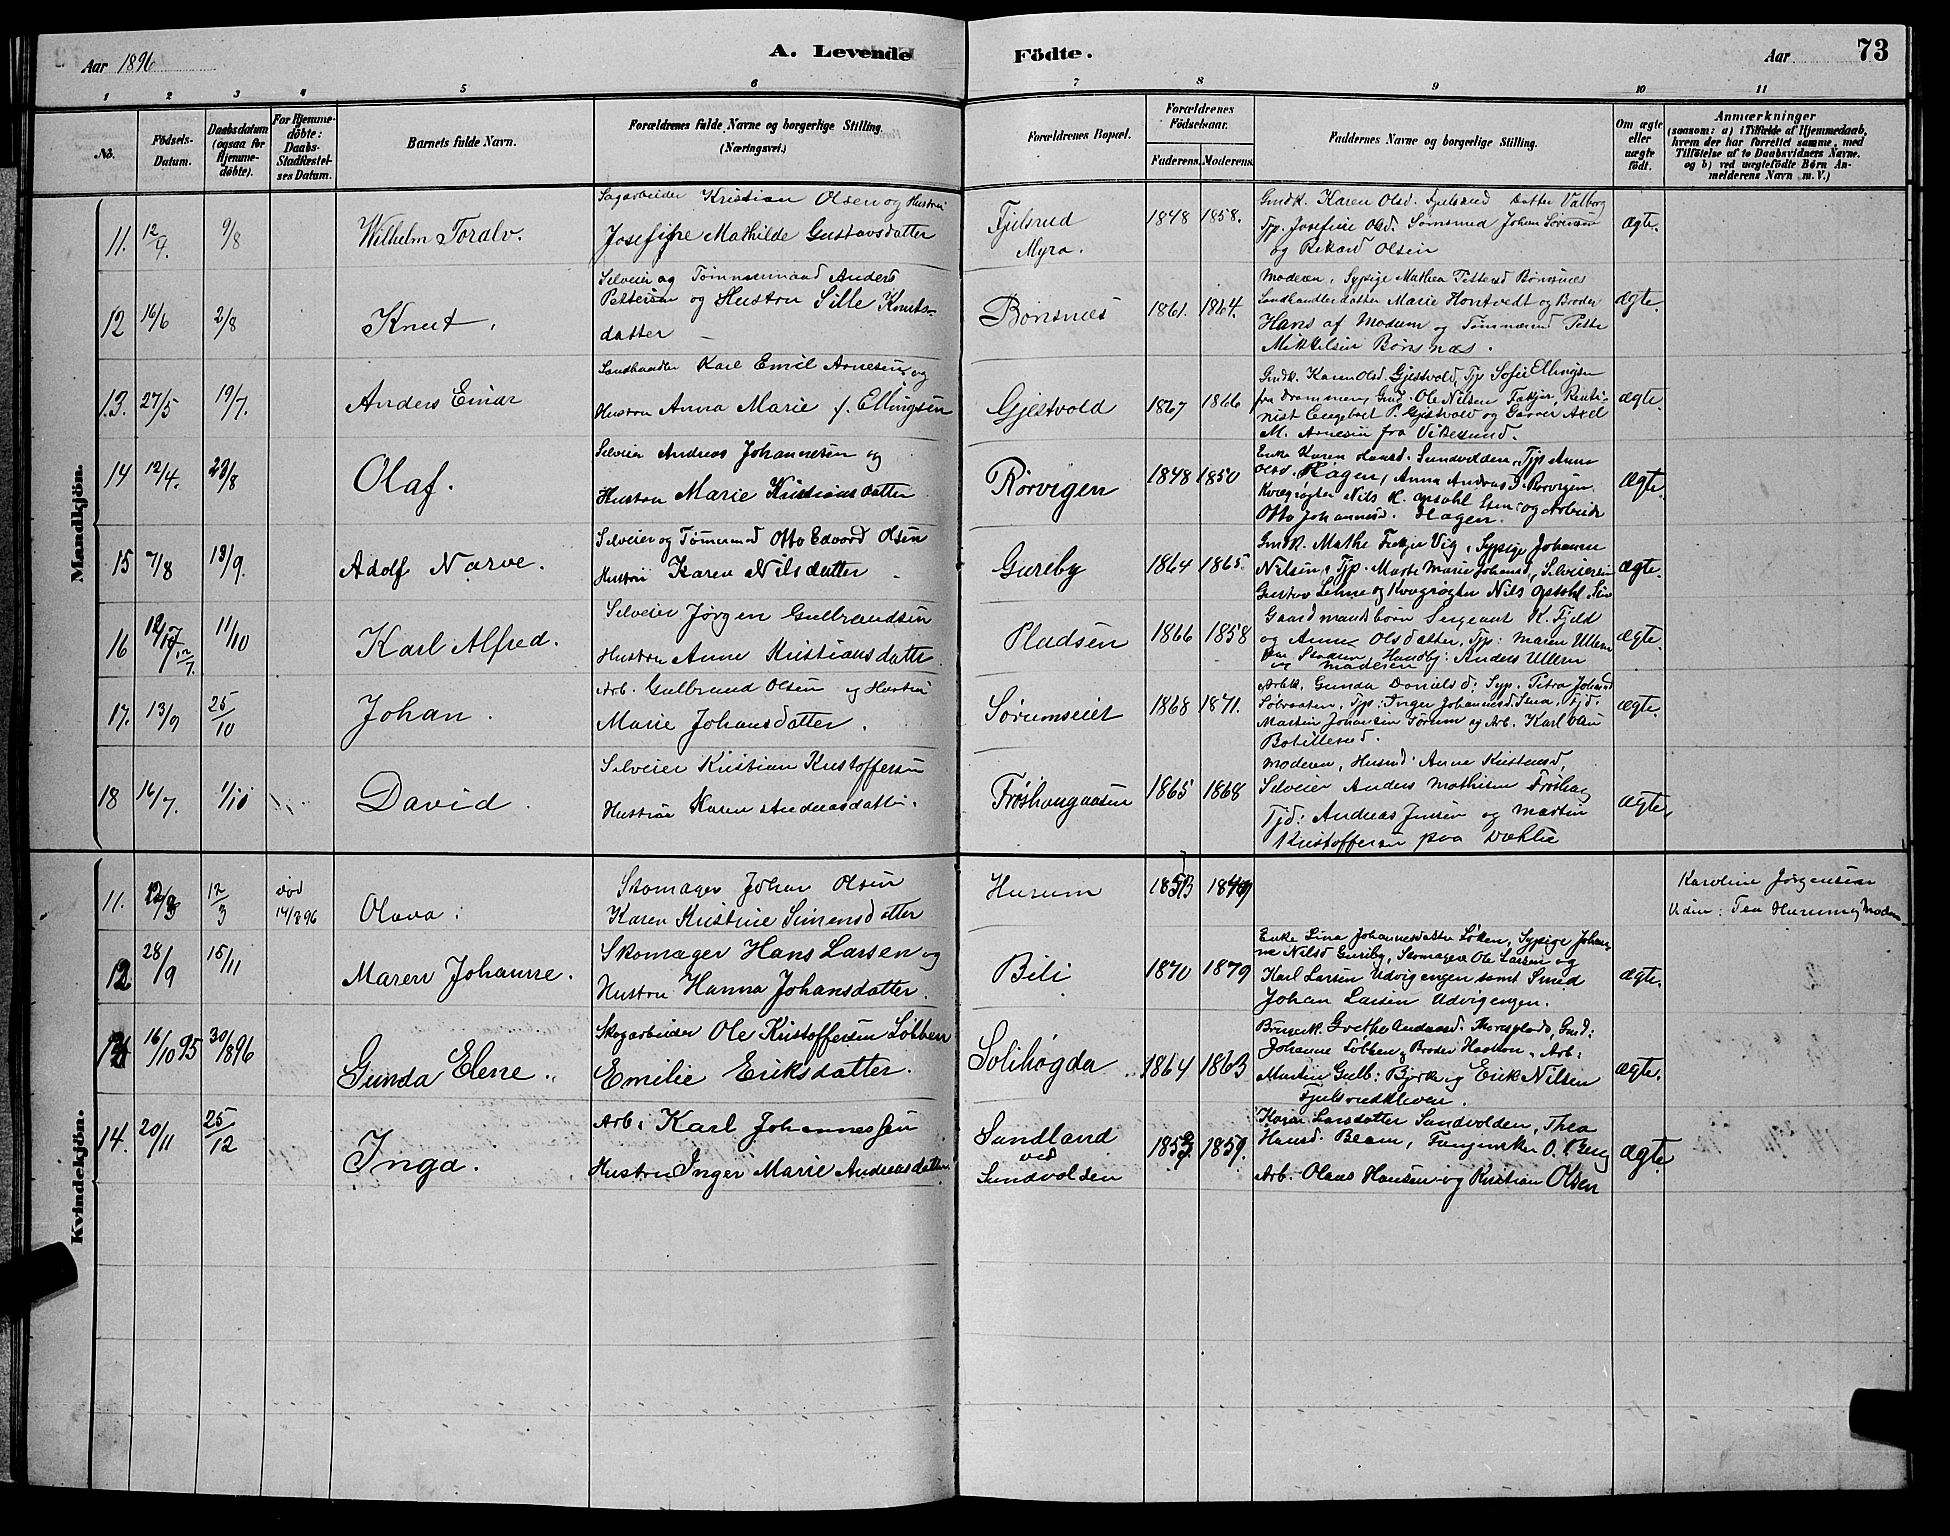 Aar 1896
A. Levende
Födte.
Aar
73
1 2 3 4 5 6 7 8 9 10 11
No.
Födsels-
Datum.
Daabsdatum
(ogsaa for
Hjemme-
döbte).
For Hjemme-
döbte:
Daabs-
Stadfæstel-
ses Datum.
Barnets fulde Navn.
Forældrenes fulde Navne og borgerlige Stilling.
(Næringsvei.)
Forældrenes Bopæl.
Forældrenes
Födselsaar.
Faderens. Moderens.
Faddernes Navne og borgerlige Stilling.
Om ægte
eller
uægte
födt.
Anmærkninger
(saasom: a) i Tilfælde af Hjemmedaab,
hvem der har forrettet samme, med
Tilföielse af to Daabsvidners Navne.
og b) ved uægtefödte Börn An-
melderens Navn m. V.)
Mandkjön.
11. 12/4. 9/8 Wilhelm Toralv.
Sagarbeider Kristian Olsen og Hustru
Josefine Mathilde Gustavsdatter
Fjelsrud
Myra.
1848 1858.
Gmdk. Karen Olsd. Fjelsrud Datter Valborg
Tjp. Josefine Olsd. Sønsrud Johan Sørensen
og Rikard Olsen
ægte.
12 16/6 2/8 Knut.
Selveier og Tømmermand Anders
Pettersen og Hustru Sille Knuts-
datter
Bønsnes
1861. 1864.
Moderen, Sypige Mathea Pettersd Bønsnes
Landhandler datter Marie Hontvedt og Broder
Hans af Modum og Tømmermd Petter
Mikkelsen Bønsnæs.
ægte.
13. 27/5 19/7. Anders Einar
Landhandler Karl Emil Arnesen og
Hustru Anna Marie f. Ellingsen
Gjestvold
1867 1866
Gmdk. Karen Olsd. Gjestvold, Tjp Sofie Ellingsen
fra Drammen, Gmd. Ole Nilsen Fekjær, Renti-
nist Engebret P. Gjestvold og Garver Axel
M. Arnesen fra Vikesund.
ægte.
14 12/4. 23/8 Olaf.
Selveier Andreas Johannesen og
Hustru Marie Kristiansdatter
Rørvigen
1848 1850
Enke Karen Hansd. Sundvolden, Tjp Anne
Olsd. Hagen, Anna Andreasd. Rørvigen
Kvægrøgter Nils K. Opsahl Sten og Arbeider
Otto Johannesd. Hagen.
ægte.
15 7/8 13/9. Adolf Narve.
Selveier og Tømmermd Otto Edvard Olsen
Hustru Karen Nilsdatter
Gureby
1864 1865
Gmdk. Mathe Fekjær Vig, Sypige Johanne
Nilsen, Tjp. Marte Marie Johansd, Selveiersøn
Gustav Lehne og Kvægrøgter Nils Opsahl Sten
ægte.
16 12/7 11/10 Karl Alfred.
Selveier Jørgen Gulbrandsen
Hustru Anne Kristiansdatter
Pladsen
1866 1858
Gaardmandsbørn Sergeant K. Fjeld
og Anne Olsdatter, Tjp: Maren Ullern
Handbj: Anders Ullern
og Moderen
ægte.
17. 13/9 25/10 Johan.
Arb. Gulbrand Olsen og Hustru
Marie Johansdatter.
Sørumseiet
1868 1871.
Arbk. Gunda Danielsd: Syp. Petra Johansd
Løbraaten, Tjp: Inger Johannesd. Tjd:
Martin Johansen Sørum og Arb. Karl
Botillerud.
ægte.
18 16/7. 1/11 David.
Selveier Kristian Kristoffersen
Hustru Karen Andreasdatter.
Frøshaugaasen
1865 1868
Moderen, Husmd Anne Kristensd,
Selveier Anders Mathisen Frøshaug
Tjd: Andreas Jensen og Martin
Kristoffersen paa Dæhlie
ægte.
Kvindekjön.
11. 12/3 12/3 død
14/3 96 Olava.
Skomager Johan Olsen
Karen Kristine Simensdatter
Hurum
1853 1849
Karoline Jørgensen
Vidne: Tea Hurum og Moderen
12 28/9 15/11 Maren Johanne.
Skomager Hans Larsen og
Hustru Hanna Johansdatter.
Bili
1870 1879
Enke Lina Johannesdatter Løken, Sypige Johan-
ne Nilsd Gureby, Skomagere Ole Larsen og
Karl Larsen Udvigengen samt Smed
Johan Larsen Udvigengen.
ægte.
13 16/10 95 30/1 896 Gunda Elene.
Skogarbeider Ole Kristoffersen Løbben
Emilie Eriksdatter.
Solihøgda
1864 1863
Brugerk. Grethe Andersd. Moresplads, Gmd:
Johanne Løbben og Broder Hadron. Arb:
Martin Gulb: Bjerke og Erik Nilsen
Fjelsrudkleven.
ægte.
14. 20/11 25/12 Inga.
Arb: Karl Johannessen
Hustru Inger Marie Andreasdatter
Sundland
ved
Sundvolden
1853 1859.
Karen Larsdatter Sundvolden, Thea
Hansd. Beam, O. Berg
Arb. Olaus Hansen og Kristian Olsen
ægte